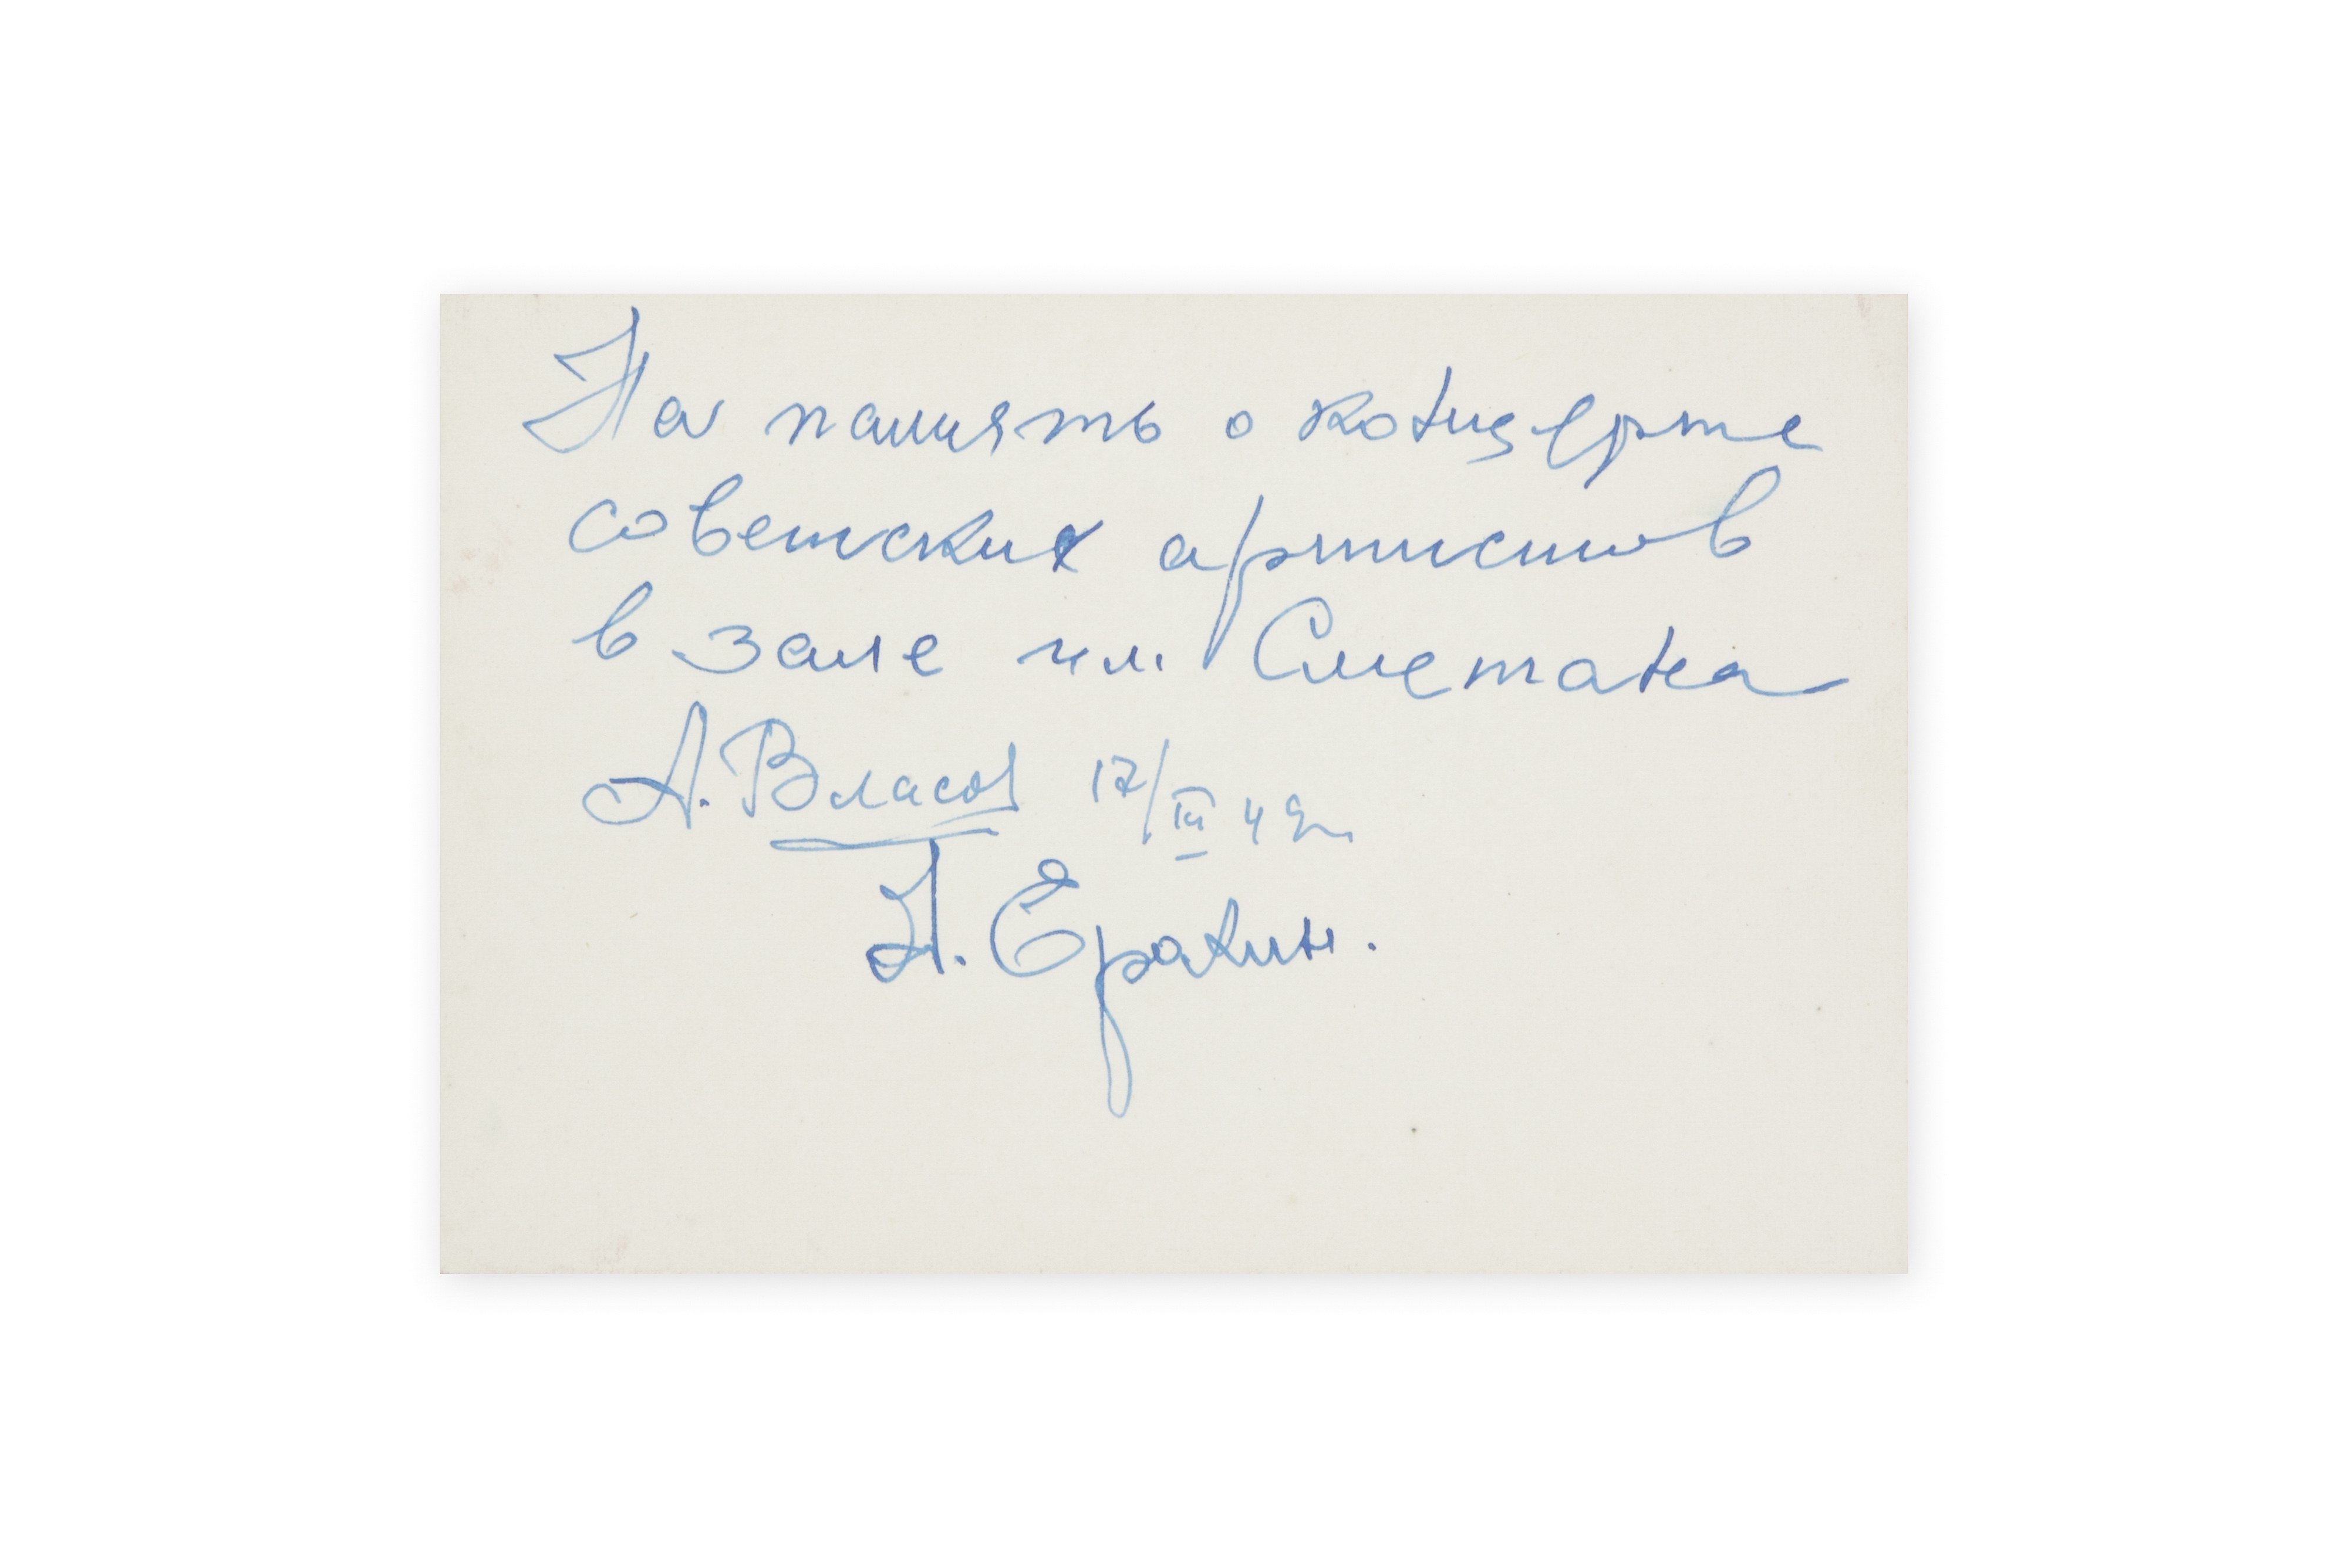 На память о концерте
советских артистов
в зале им. Сметана
А. Власов 17/III 49г.
Н. Ёракин.